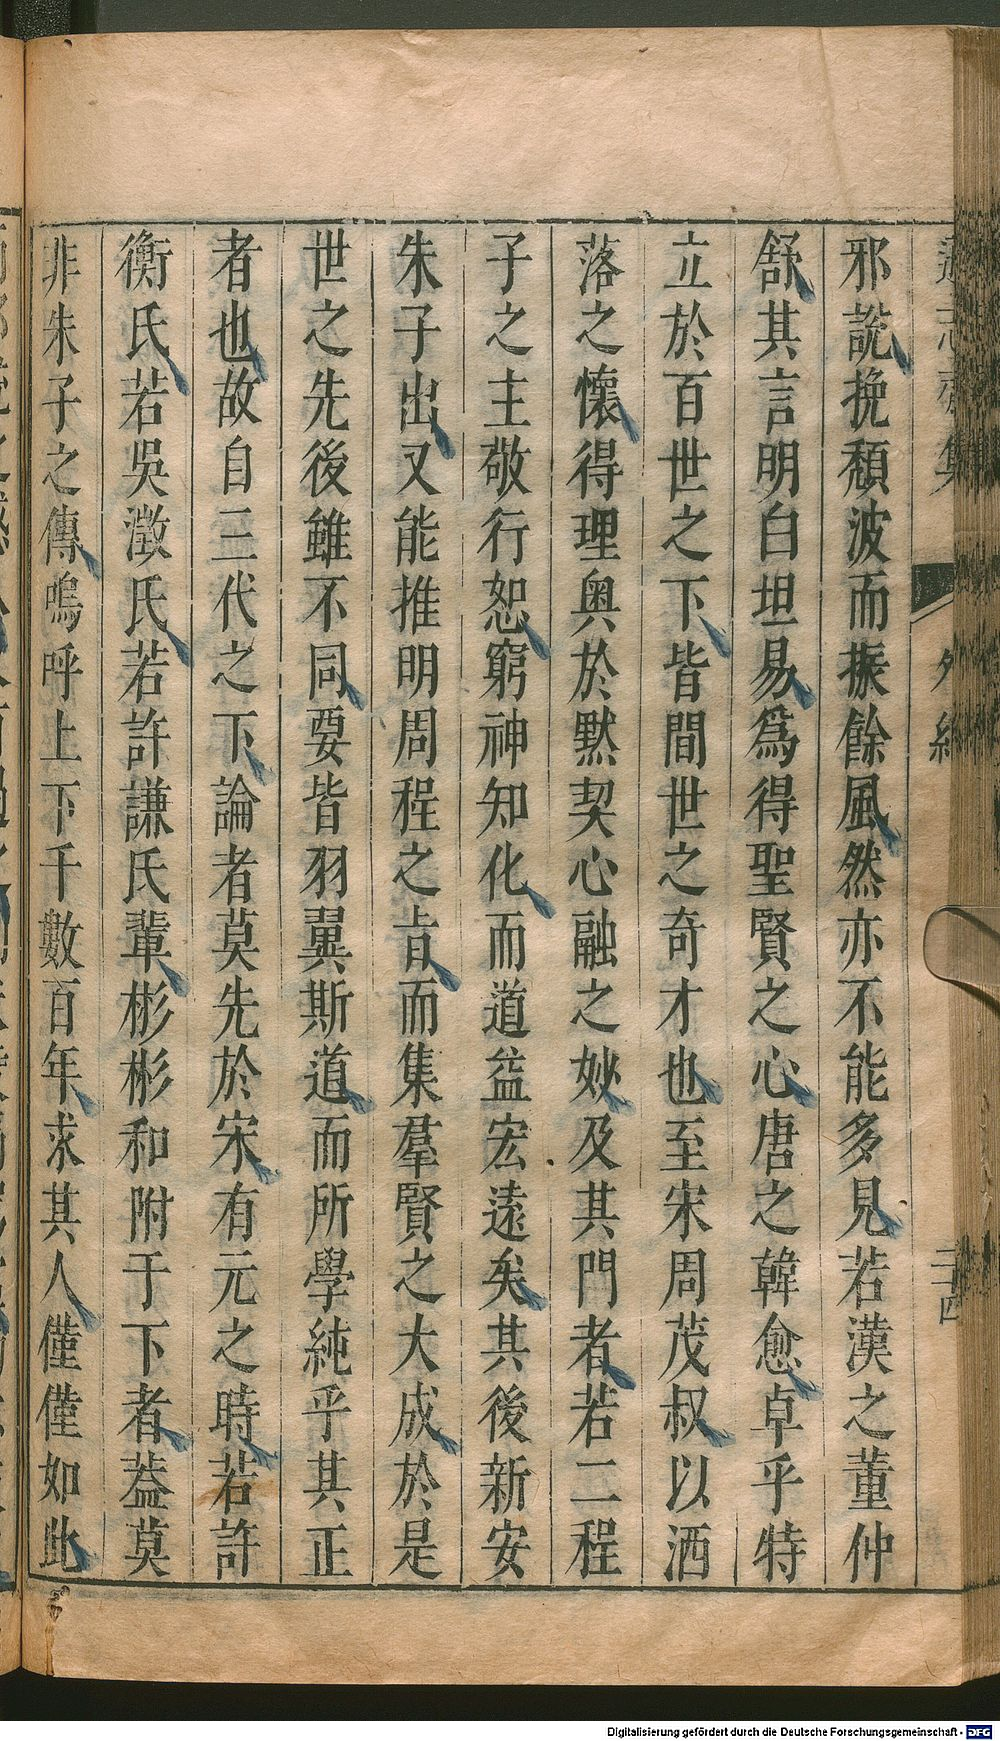 遜志齋集
外紀
二十四
邪說挽頹波而振餘風然亦不能多見若漢之董仲
舒其言明白坦易爲得聖賢之心唐之韓愈卓乎特
立於百世之下皆間世之奇才也至宋周茂叔以洒
落之懷得理奥於黙契心融之妙及其門者若二程
子之主敬行恕窮神知化而道益宏遠矣其後新安
朱子出又能推明周程之旨而集羣賢之大成於是
世之先後雖不同要皆羽翼斯道而所學純乎其正
者也故自三代之下論者莫先於宋有元之時若許
衡氏若吳澂氏若許謙氏輩彬彬和附于下者葢莫
非朱子之傳嗚呼上下千數百年求其人僅僅如此
Digitalisierung gefördert durch die Deutsche Forschungsgemeinschaft - DFG